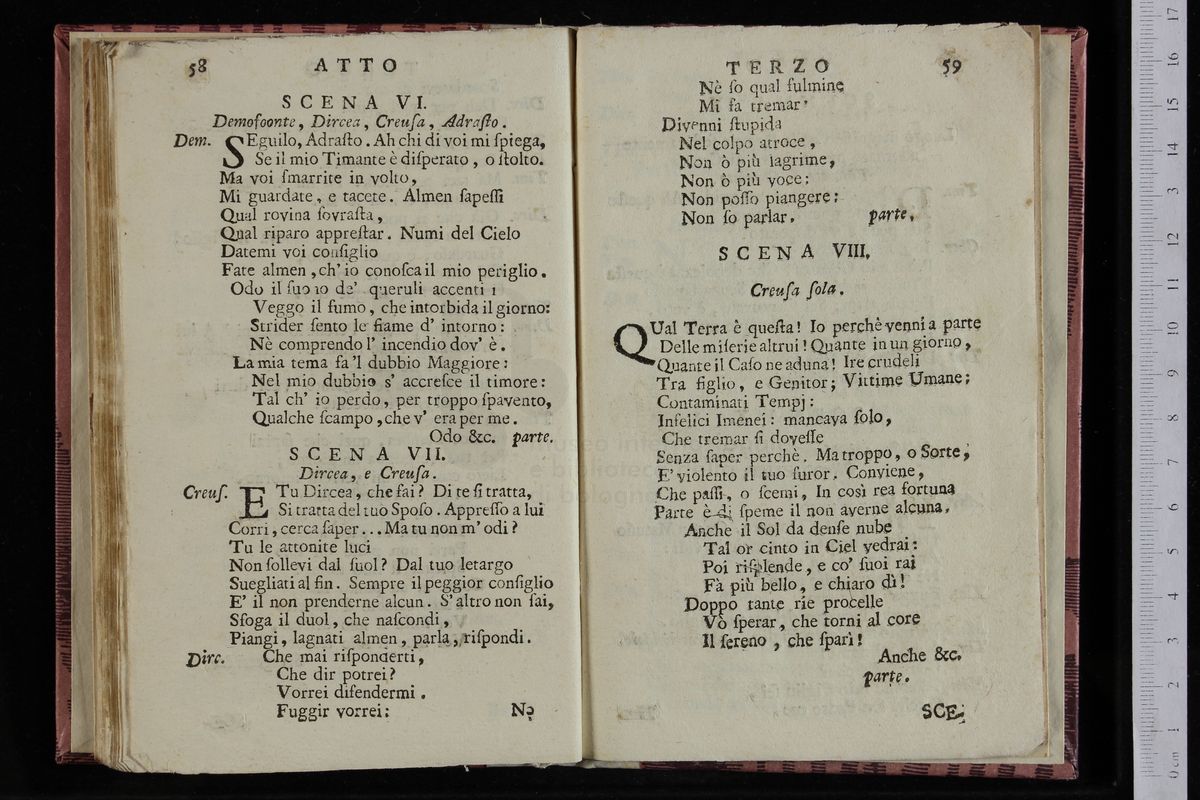 58 ATTO
SCENA VI.
Demofoonte, Dircea, Creuſa, Adraſto.
Dem. SEguilo, Adraſto. Ah chi di voi mi ſpiega,
Se il mio Timante è diſperato, o ſtolto.
Ma voi ſmarrite in volto,
Mi guardate, e tacete. Almen ſapeſſi
Qual rovina ſovraſta,
Qual riparo appreſtar. Numi del Cielo
Datemi voi conſiglio
Fate almen, ch' io conoſca il mio periglio.
Odo il ſuo io de' queruli accenti
Veggo il fumo, che intorbida il giorno:
Strider ſento le fiame d' intorno:
Nè comprendo l' incendio dov' è.
La mia tema fa 'l dubbio Maggiore:
Nel mio dubbio s' accreſce il timore:
Tal ch' io perdo, per troppo ſpavento,
Qualche ſcampo, che v' era per me.
Odo &c. parte.
SCENA VII.
Dircea, e Creuſa.
Creuſ. E Tu Dircea, che fai? Di te ſi tratta,
Si tratta del tuo Spoſo. Appreſſo a lui
Corri, cerca ſaper... Ma tu non m' odi?
Tu le attonite luci
Non ſollevi dal ſuol? Dal tuo letargo
Suegliati al fin. Sempre il peggior conſiglio
E' il non prenderne alcun. S' altro non ſai,
Sfoga il duol, che naſcondi,
Piangi, lagnati almen, parla, riſpondi.
Dirc. Che mai riſponderti,
Che dir potrei?
Vorrei difendermi.
Fuggir vorrei:
Nè
TERZO 59
Nè ſo qual fulmine
Mi fa tremar.
Divenni ſtupida
Nel colpo atroce,
Non ò più lagrime,
Non ò più voce:
Non poſſo piangere:
Non ſo parlar. parte.
SCENA VIII.
Creuſa ſola.
QUal Terra è queſta! Io perchè venni a parte
Delle miſerie altrui! Quante in un giorno,
Quante il Caſo ne aduna! Ire crudeli
Tra figlio, e Genitor; Vittime Umane;
Contaminati Tempj:
Infelici Imenei: mancava ſolo,
Che tremar ſi doveſſe
Senza ſaper perchè. Ma troppo, o Sorte,
E' violento il tuo furor. Conviene,
Che paſſi, o ſcemi, In così rea fortuna
Parte è di ſpeme il non averne alcuna.
Anche il Sol da denſe nube
Tal or cinto in Ciel vedrai:
Poi riſplende, e co' ſuoi rai
Fà più bello, e chiaro dì!
Doppo tante rie procelle
Vò ſperar, che torni al core
Il ſereno, che ſparì!
Anche &c.
parte.
SCE-